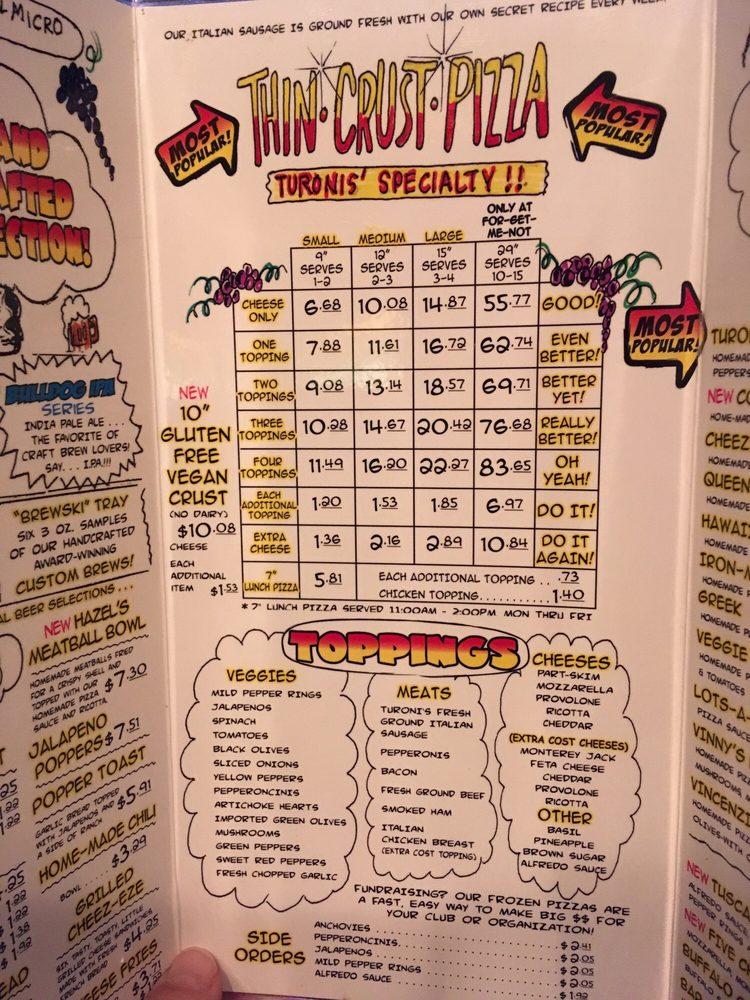 OUR ITALIAN SAUSAGE IS GROUND FRESH WITH OUR OWN SECRET RECIPE EVERY WEEK
THIN·CRUST·PIZZA
MOST POPULAR!
MOST POPULAR!
TURONIS' SPECIALTY !!
ONLY AT
FOR-GET-
ME-NOT
SMALL MEDIUM LARGE
9" 12" 15" 29"
SERVES SERVES SERVES SERVES
1-2 2-3 3-4 10-15
CHEESE ONLY 6.68 10.08 14.87 55.77 GOOD!
ONE TOPPING 7.88 11.61 16.72 62.74 EVEN BETTER!
TWO TOPPINGS 9.08 13.14 18.57 69.71 BETTER YET!
THREE TOPPINGS 10.28 14.67 20.42 76.68 REALLY BETTER!
FOUR TOPPINGS 11.49 16.20 22.27 83.65 OH YEAH!
EACH ADDITIONAL TOPPING 1.20 1.53 1.85 6.97 DO IT!
EXTRA CHEESE 1.36 2.16 2.89 10.84 DO IT AGAIN!
7" LUNCH PIZZA 5.81 EACH ADDITIONAL TOPPING . . .73
CHICKEN TOPPING.......... 1.40
* 7" LUNCH PIZZA SERVED 11:00AM - 2:00PM MON THRU FRI
NEW
10"
GLUTEN
FREE
VEGAN
CRUST
(NO DAIRY)
$10.08
CHEESE
EACH
ADDITIONAL
ITEM $1.53
MOST POPULAR!
TOPPINGS
VEGGIES
MILD PEPPER RINGS
JALAPENOS
SPINACH
TOMATOES
BLACK OLIVES
SLICED ONIONS
YELLOW PEPPERS
PEPPERONCINIS
ARTICHOKE HEARTS
IMPORTED GREEN OLIVES
MUSHROOMS
GREEN PEPPERS
SWEET RED PEPPERS
FRESH CHOPPED GARLIC
MEATS
TURONI'S FRESH
GROUND ITALIAN
SAUSAGE
PEPPERONIS
BACON
FRESH GROUND BEEF
SMOKED HAM
ITALIAN
CHICKEN BREAST
(EXTRA COST TOPPING)
CHEESES
PART-SKIM
MOZZARELLA
PROVOLONE
RICOTTA
CHEDDAR
(EXTRA COST CHEESES)
MONTEREY JACK
FETA CHEESE
CHEDDAR
PROVOLONE
RICOTTA
OTHER
BASIL
PINEAPPLE
BROWN SUGAR
ALFREDO SAUCE
FUNDRAISING? OUR FROZEN PIZZAS ARE
A FAST, EASY WAY TO MAKE BIG $$ FOR
YOUR CLUB OR ORGANIZATION!
SIDE
ORDERS
ANCHOVIES $2.41
PEPPERONCINIS $2.05
JALAPENOS $2.05
MILD PEPPER RINGS $2.05
ALFREDO SAUCE $1.92
MICRO
BULLDOG IPA
SERIES
INDIA PALE ALE . . .
THE FAVORITE OF
CRAFT BREW LOVERS!
SAY. . . I.P.A.!!!
"BREWSKI" TRAY
SIX 3 OZ. SAMPLES
OF OUR HANDCRAFTED
AWARD-WINNING
CUSTOM BREWS!
BEER SELECTIONS . . .
NEW HAZEL'S
MEATBALL BOWL
HOMEMADE MEATBALLS FRIED
FOR A CRISPY SHELL AND
TOPPED WITH OUR
HOMEMADE PIZZA
SAUCE AND RICOTTA.
$7.30
JALAPENO
POPPERS $7.51
POPPER TOAST
GARLIC BREAD TOPPED
WITH JALAPENOS AND
A SIDE OF RANCH
$5.91
HOME-MADE CHILI
BOWL . . . . . $3.29
GRILLED
CHEEZ-EZE
SIX TASTY, TOASTY, LITTLE
GRILLED CHEESE SANDWICHES
MADE WITH FRESH
FRENCH BREAD
$4.25
FRIES
HOMEMADE
PEPPERS
NEW
QUEEN
GREEK
VEGGIE
& TOMATOES
PIZZA SAUCE
VINNY'S
NEW
NEW FIVE
BUFFALO